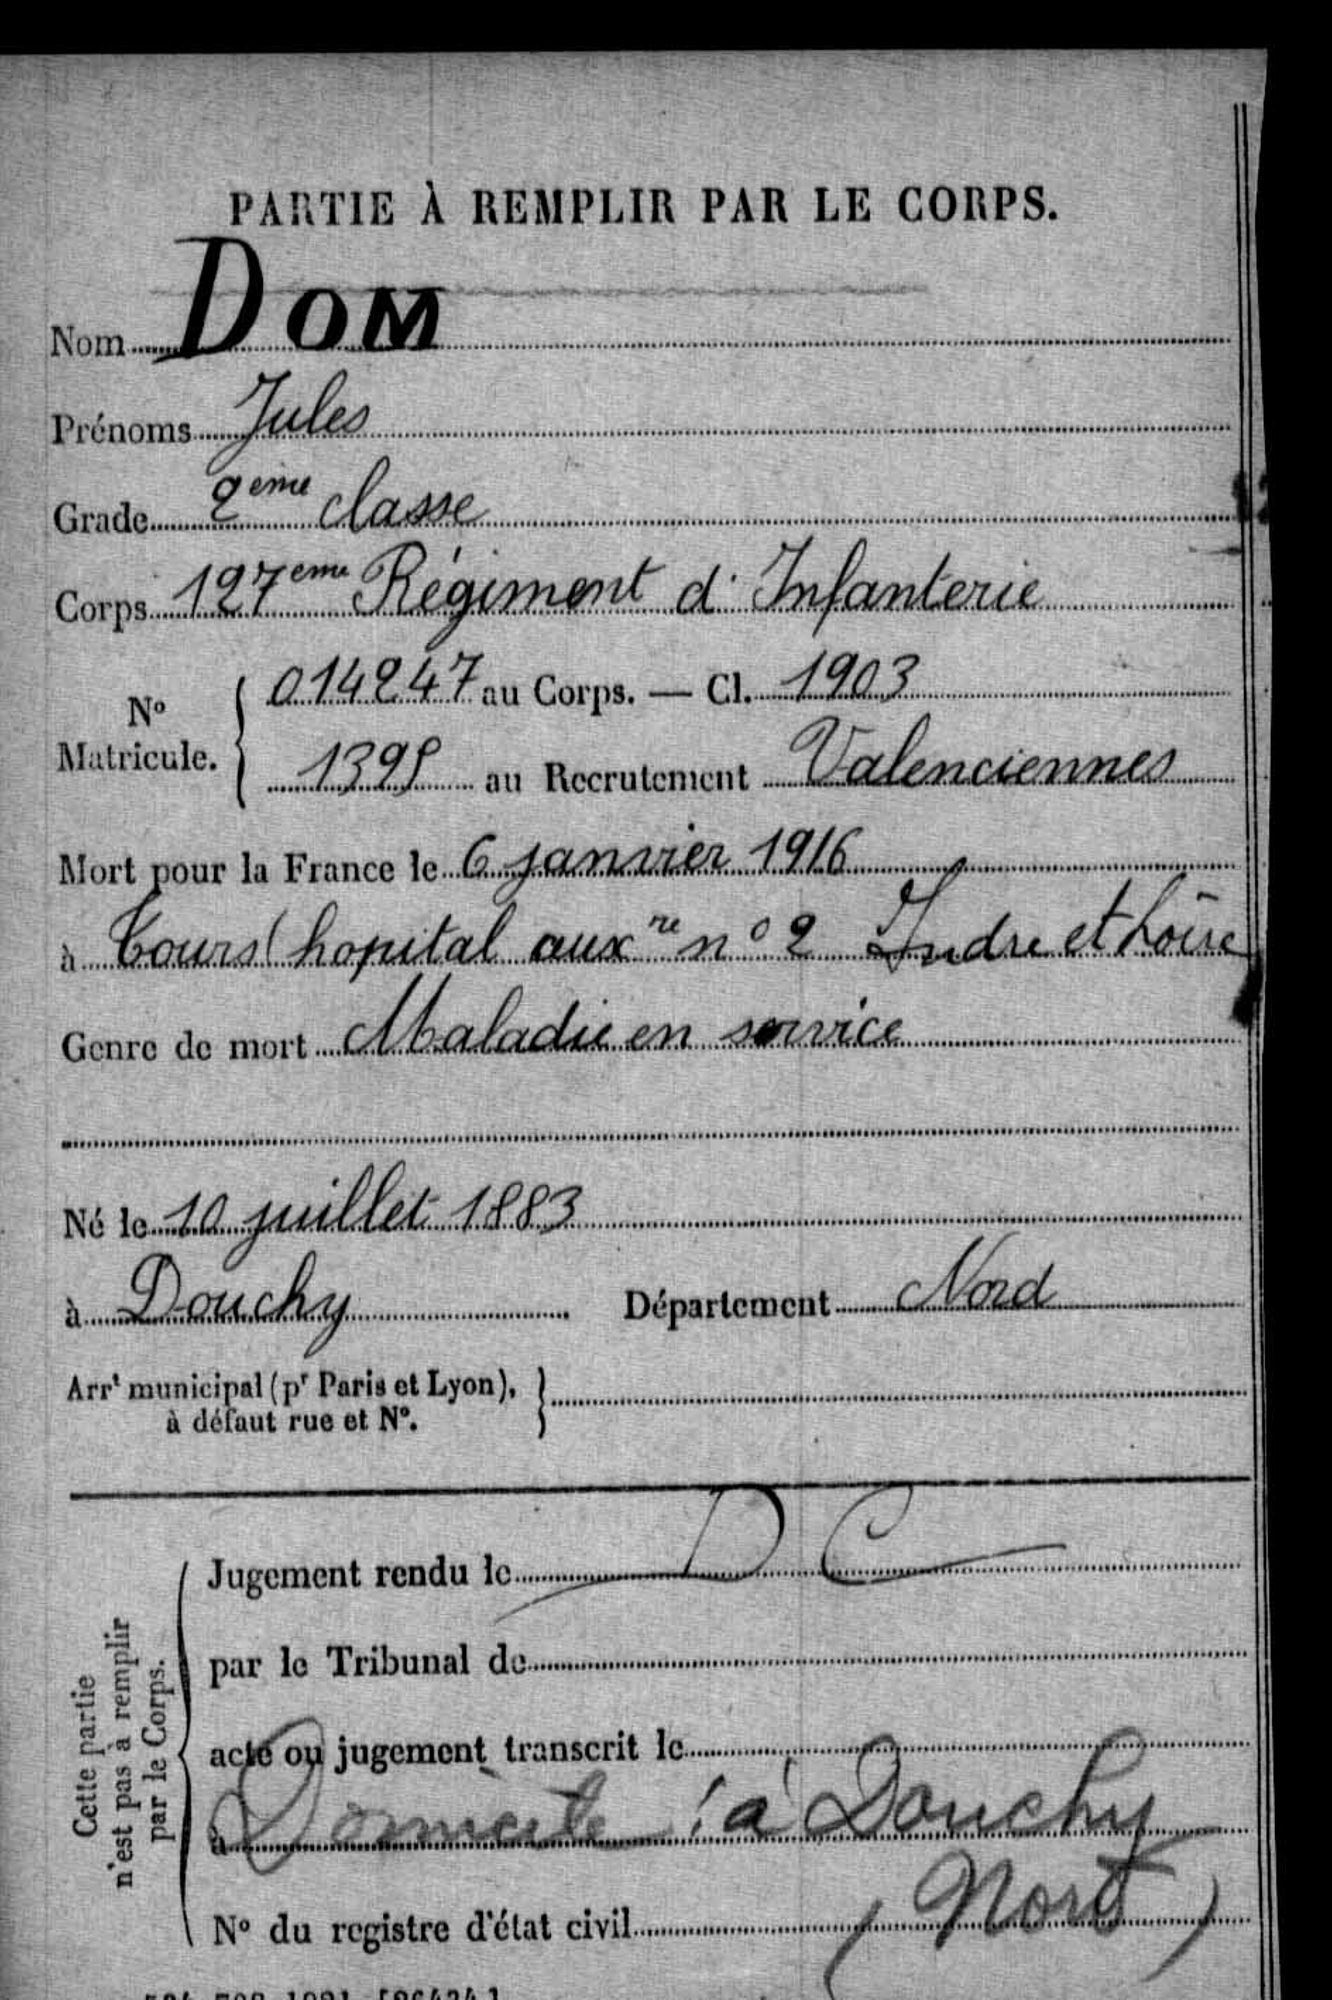 PARTIE À REMPLIR PAR LE CORPS.
Nom DOM
Prénoms Jules
Grade 2ème classe
Corps 127eme Régiment d'Infanterie
N° Matricule. { 014247 au Corps. — Cl. 1903
1395 au Recrutement Valenciennes
Mort pour la France le 6 janvier 1916
à Tours (hopital auxre n° 2 Indre et Loire
Genre de mort Maladie en service
Né le 10 juillet 1883
à Douchy Département Nord
Arrt municipal (pr Paris et Lyon), }
à défaut rue et N°.
Cette partie
n'est pas à remplir
par le Corps.
Jugement rendu le D C
par le Tribunal de
acte ou jugement transcrit le
à Domicile à Douchy
N° du registre d'état civil (Nord)